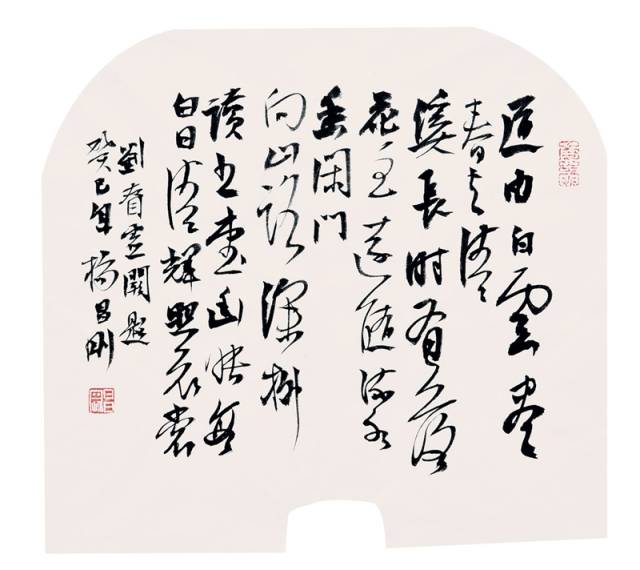 道由白雲尽
春与清
溪長时有落
花至遠随流水
香闲門
向山路深柳
讀书堂幽映每
白日清輝照衣裳
劉眘虚闕題
癸巳年杨昌刚